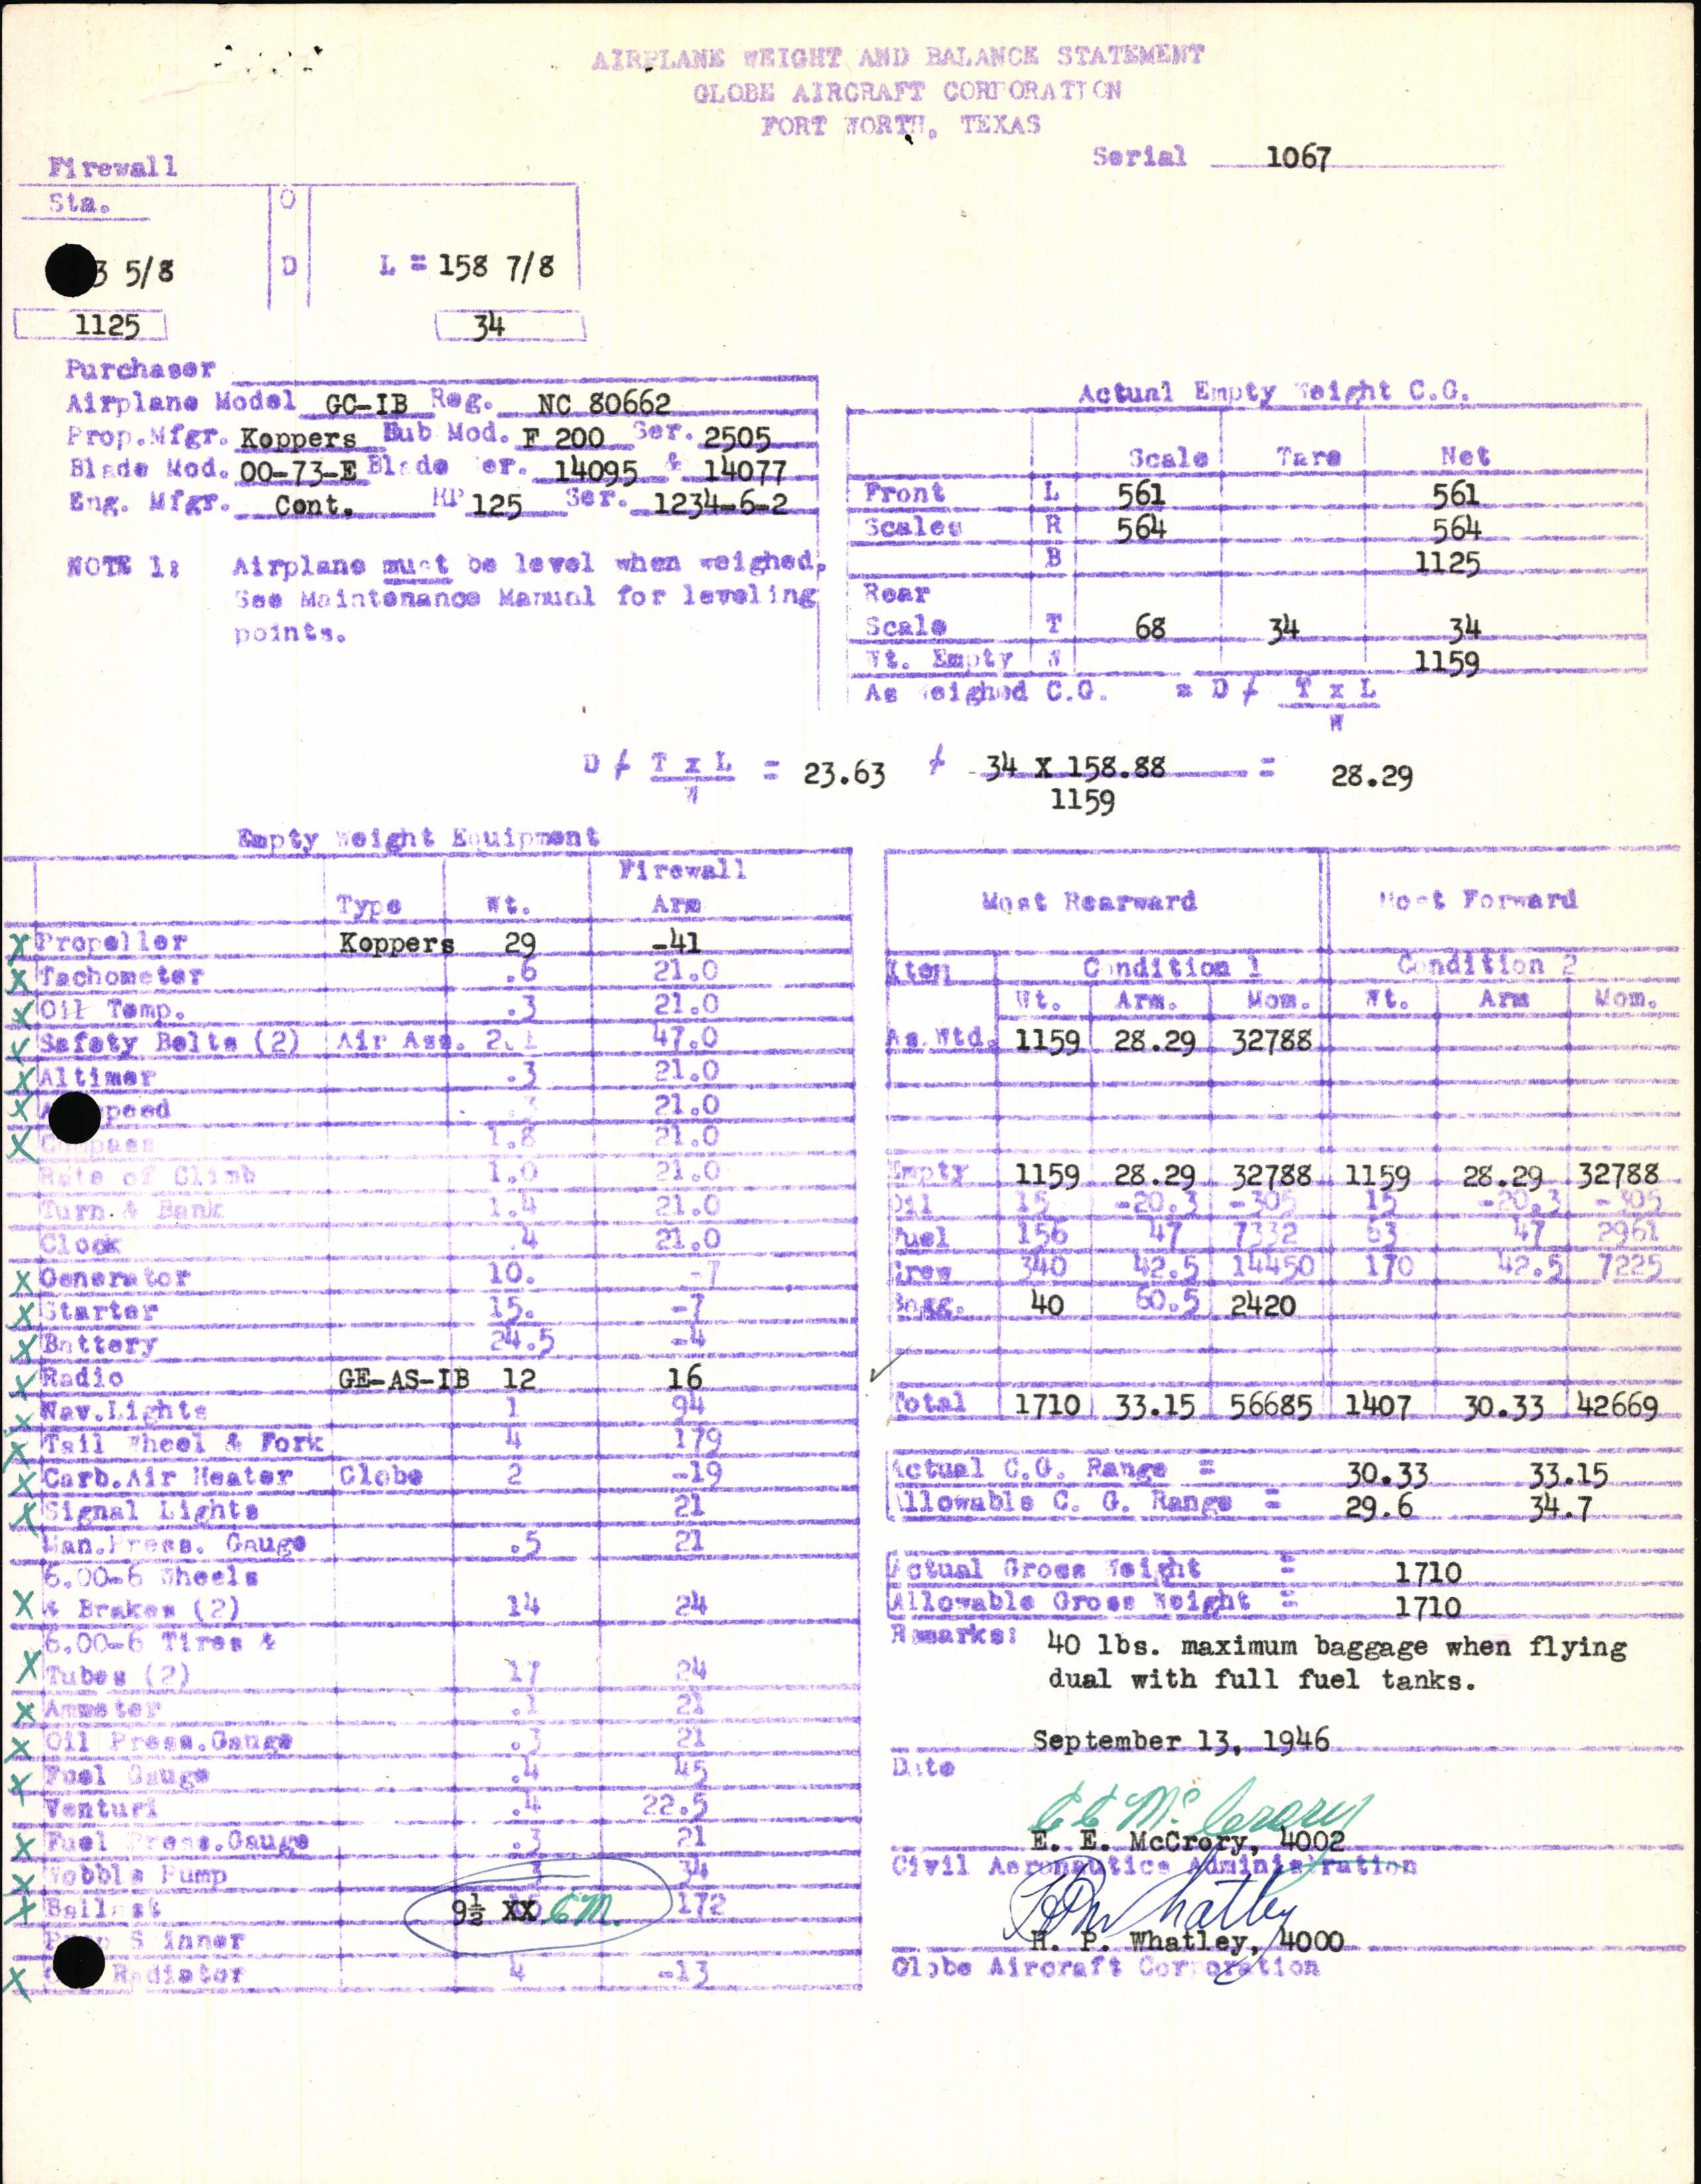 AIRPLANE WEIGHT AND BALANCE STATEMENT
GLOBE AIRCRAFT CORPORATION
FORT WORTH, TEXAS
Serial 1067
Firewall
Sta. O
3 5/8 D L = 158 7/8
1125 34
Purchaser
Airplane Model GC-IB Reg. NC 80662
Prop.Mfgr. Koppers Hub Mod. F 200 Ser. 2505
Blade Mod. 00-73-E Blade Ser. 14095 & 14077
Eng. Mfgr. Cont. HP 125 Ser. 1234-6-2
NOTE 1: Airplane must be level when weighed.
See Maintenance Manual for leveling
points.
Actual Empty Weight C.G.
Scale Tare Net
Front L 561 561
Scales R 564 564
B 1125
Rear
Scale T 68 34 34
Wt. Empty W 1159
As Weighed C.G. = D ≠ T x L
W
D ≠ T x L = 23.63 ≠ 34 X 158.88 = 28.29
W 1159
Empty Weight Equipment
Firewall
Type Wt. Arm
X Propeller Koppers 29 -41
X Tachometer .6 21.0
X Oil Temp. .3 21.0
X Safety Belts (2) Air Ass. 2.1 47.0
X Altimer .3 21.0
X speed .3 21.0
X Compass 1.8 21.0
Rate of Climb 1.0 21.0
Turn & Bank 1.4 21.0
Clock .4 21.0
X Generator 10. -7
X Starter 15. -7
X Battery 24.5 -4
X Radio GE-AS-IB 12 16
X Nav.Lights 1 94
X Tail Wheel & Fork 4 179
X Carb.Air Heater Globe 2 -19
X Signal Lights 21
Man.Press. Gauge .5 21
6.00-6 Wheels
X & Brakes (2) 14 24
6.00-6 Tires &
X Tubes (2) 17 24
X Ammeter .1 21
X Oil Press.Gauge .3 21
X Fuel Gauge .4 45
Venturi .4 22.5
X Fuel Press.Gauge .3 21
X Wobble Pump 3 34
X Ballast 9½ XX EM. 172
Prop Spinner
X Radiator 4 -13
Most Rearward Most Forward
Item Condition 1 Condition 2
Wt. Arm. Mom. Wt. Arm Mom.
As Wtd. 1159 28.29 32788
Empty 1159 28.29 32788 1159 28.29 32788
Oil 15 -20.3 -305 15 -20.3 -305
Fuel 156 47 7332 63 47 2961
Crew 340 42.5 14450 170 42.5 7225
Bagg. 40 60.5 2420
Total 1710 33.15 56685 1407 30.33 42669
Actual C.G. Range = 30.33 33.15
Allowable C. G. Range = 29.6 34.7
Actual Gross Weight = 1710
Allowable Gross Weight = 1710
Remarks: 40 lbs. maximum baggage when flying
dual with full fuel tanks.
September 13, 1946
Date
E E McCrory
E. E. McCrory, 4002
Civil Aeronautics Administration
HP Whatley
H. P. Whatley, 4000
Globe Aircraft Corporation